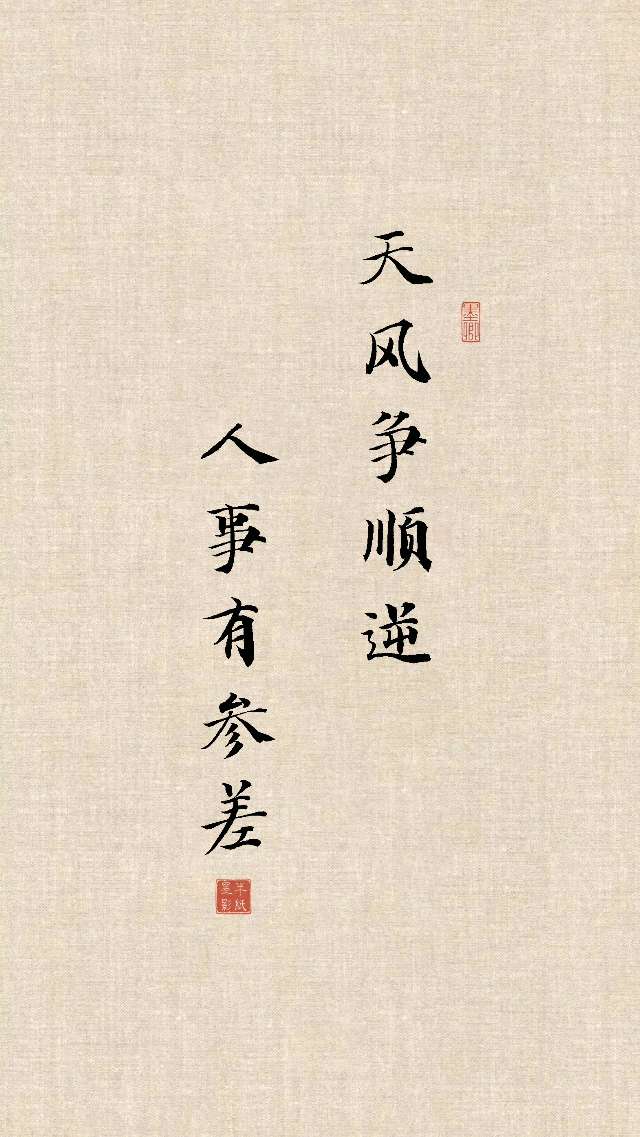 天风争顺逆
人事有参差